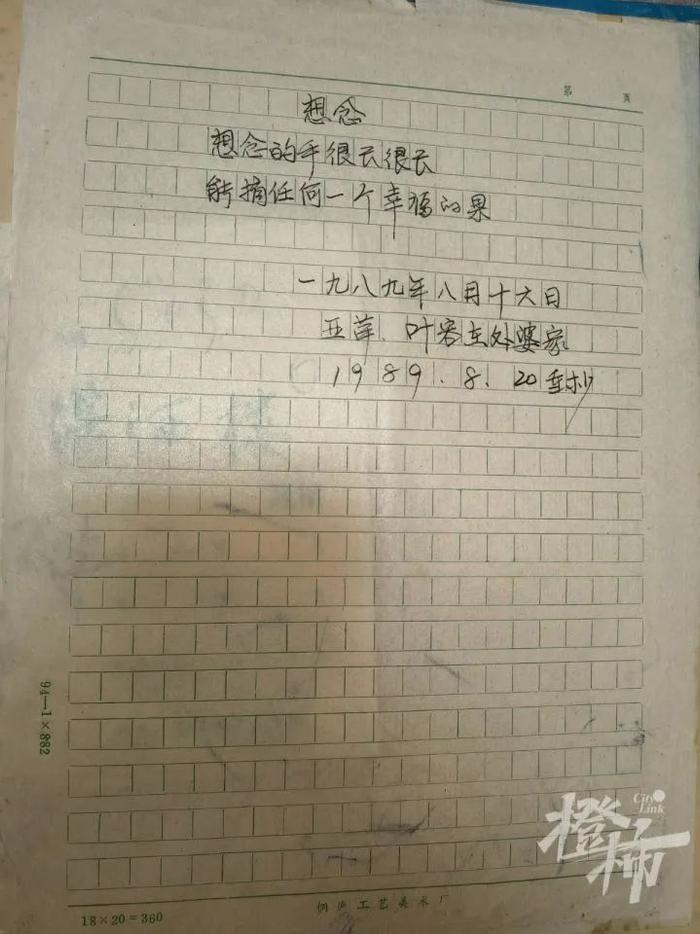 第 页
想念
想念的手很长很长
能摘任何一个幸福的果
一九八九年八月十六日
亚萍、叶客在外婆家
1989.8.20重抄
94—1×882
18×20=360
工艺美术厂
City Link
橙柿